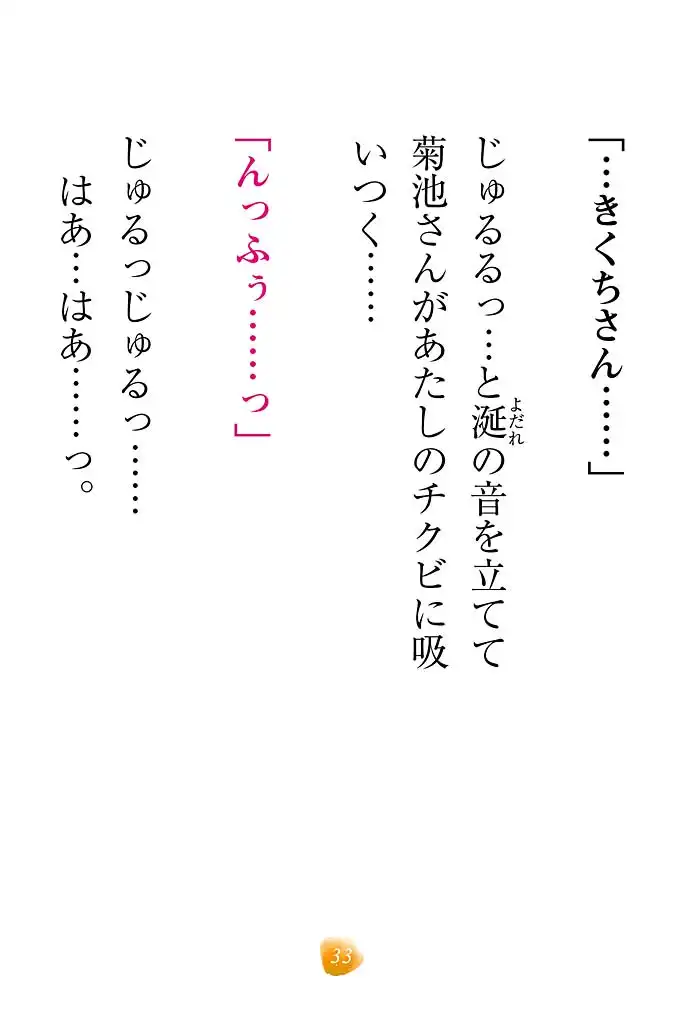 「…きくちさん……」
じゅるるっ…と涎の音を立てて
よだれ
菊池さんがあたしのチクビに吸
いつく……
「んっふぅ………っ」
じゅるっじゅるっ……
はあ…はあ………っ。
33